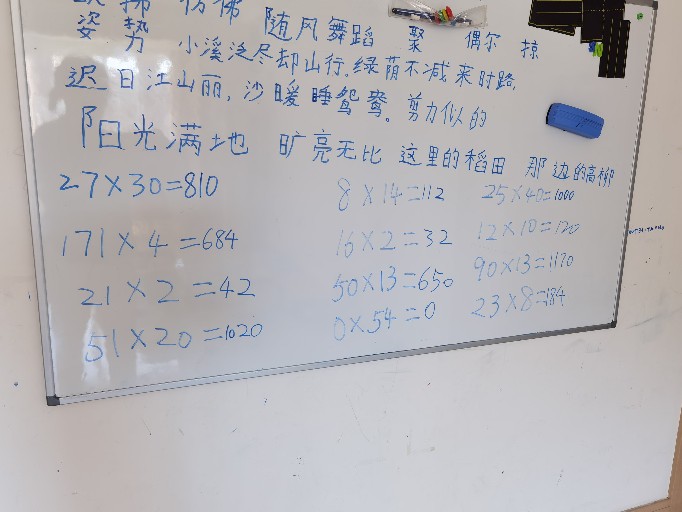 拂 仿佛 随风舞蹈 聚 偶尔 掠
姿势 小溪泛尽却山行,绿荫不减来时路,
迟日江山丽,沙暖睡鸳鸯。剪刀似的
阳光满地 旷亮无比 这里的稻田 那边的高柳
27×30=810 8×14=112 25×40=1000
171×4=684 16×2=32 12×10=120
21×2=42 50×13=650 90×13=1170
51×20=1020 0×54=0 23×8=184